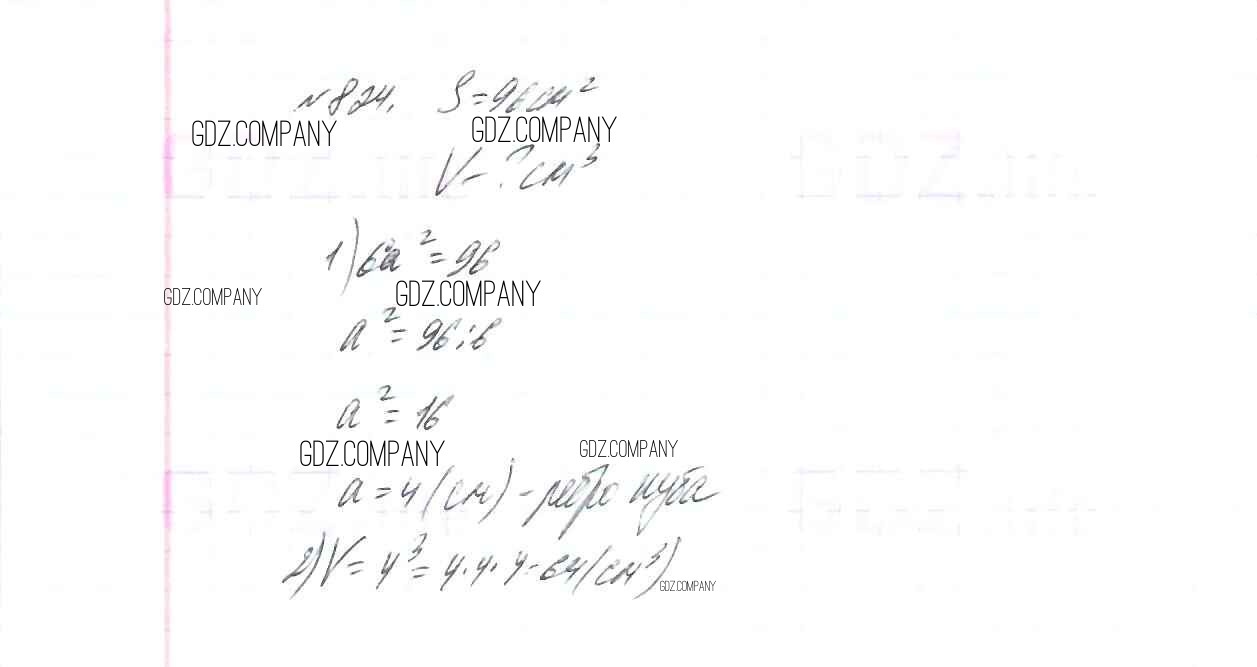 №824. S=96см²
GDZ.COMPANY GDZ.COMPANY
GDZ.me GDZ.me
V-?см³
1) 6a²=96
GDZ.COMPANY GDZ.COMPANY
a²=96:6
a²=16
GDZ.COMPANY GDZ.COMPANY
a=4(см)-ребро куба
2) V=4³=4·4·4=64(см³)
GDZ.COMPANY